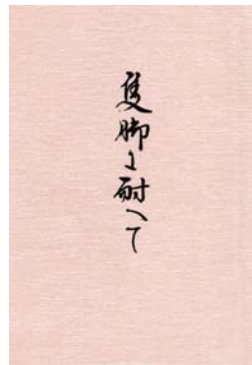 隻脚に耐へて